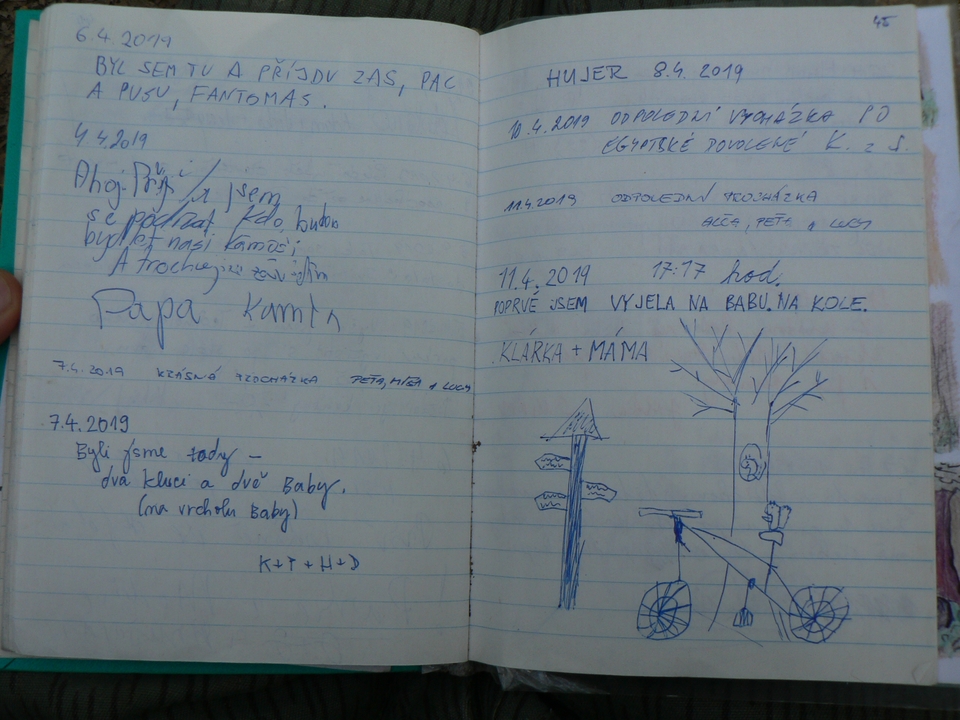 6.4.2019
BYL SEM TU A PŘÍJDU ZAS, PAC
A PUSU, FANTOMAS.
4.4.2019
Ahoj. jsem
se podívat kdo budou
bydlet naši
A trochu
Papa
7.4.2019 KRÁSNÁ PROCHÁZKA PEŤA, MÍŠA A LUCY
7.4.2019
Byli jsme tady –
dva kluci a dvě Baby.
(na vrcholu Baby)
K+T+H+D
45
HUJER 8.4.2019
10.4.2019 ODPOLEDNÍ VYCHÁZKA PO
EGYPTSKÉ DOVOLENÉ K. z S.
11.4.2019 ODPOLEDNÍ PROCHÁZKA
PEŤA A LUCY
11.4.2019 17:17 hod.
POPRVÉ JSEM VYJELA NA BABU. NA KOLE.
KLÁRKA + MÁMA